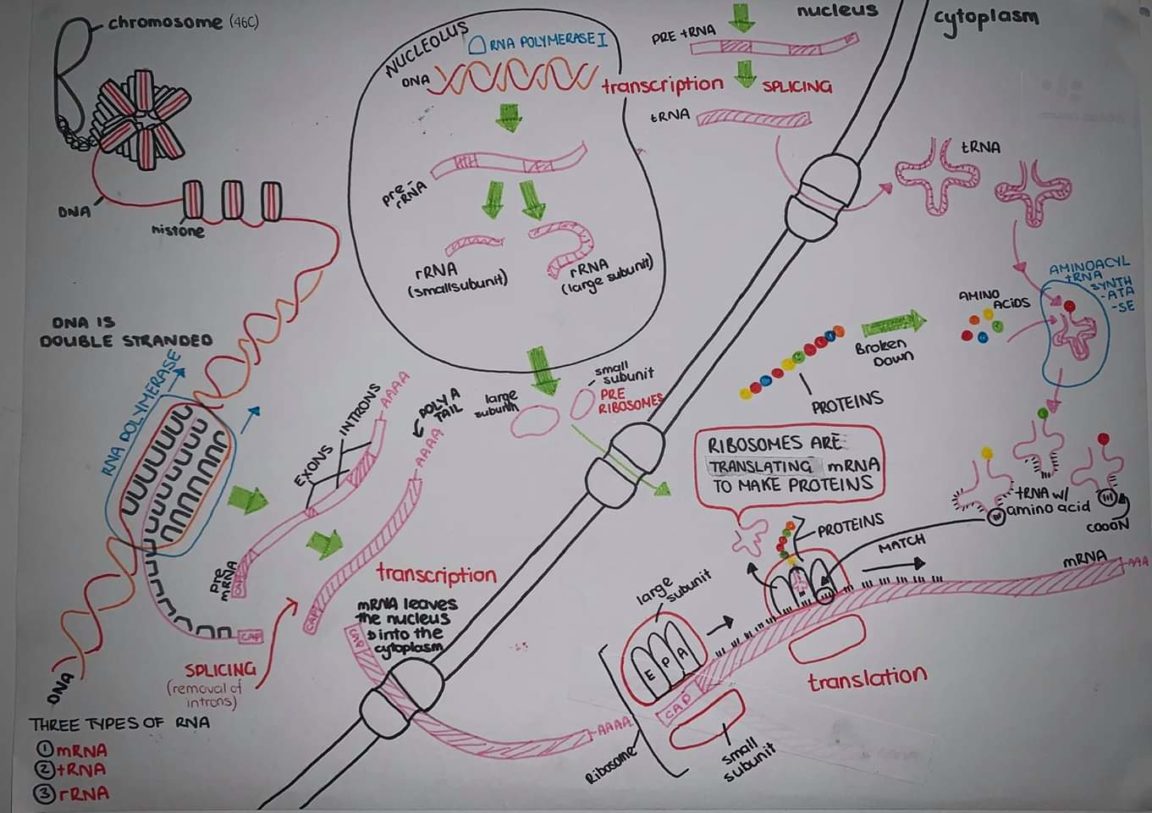 chromosome (46C)
DNA
histone
DNA IS
DOUBLE STRANDED
RNA POLYMERASE
NUCLEOLUS
RNA POLYMERASE I
DNA
pre-
rRNA
rRNA
(smallsubunit)
rRNA
(large subunit)
transcription
nucleus
PRE tRNA
SPLICING
tRNA
cytoplasm
tRNA
AMINOACYL
tRNA
SYNTH
-ATA
-SE
AMINO
ACIDS
Broken
Down
PROTEINS
large
subunit
small
subunit
PRE
RIBOSOMES
EXONS
INTRONS
AAAA
POLY A
TAIL
AAAA
pre
mRNA
CAP
CAP
CAP
SPLICING
(removal of
introns)
transcription
mRNA leaves
the nucleus
into the
cytoplasm
CAP
AAAA
RIBOSOMES ARE
TRANSLATING mRNA
TO MAKE PROTEINS
PROTEINS
MATCH
tRNA w/
amino acid
CODON
mRNA
AAA
large
subunit
E P A
CAP
Ribosome
small
subunit
translation
DNA
THREE TYPES OF RNA
① mRNA
② tRNA
③ rRNA